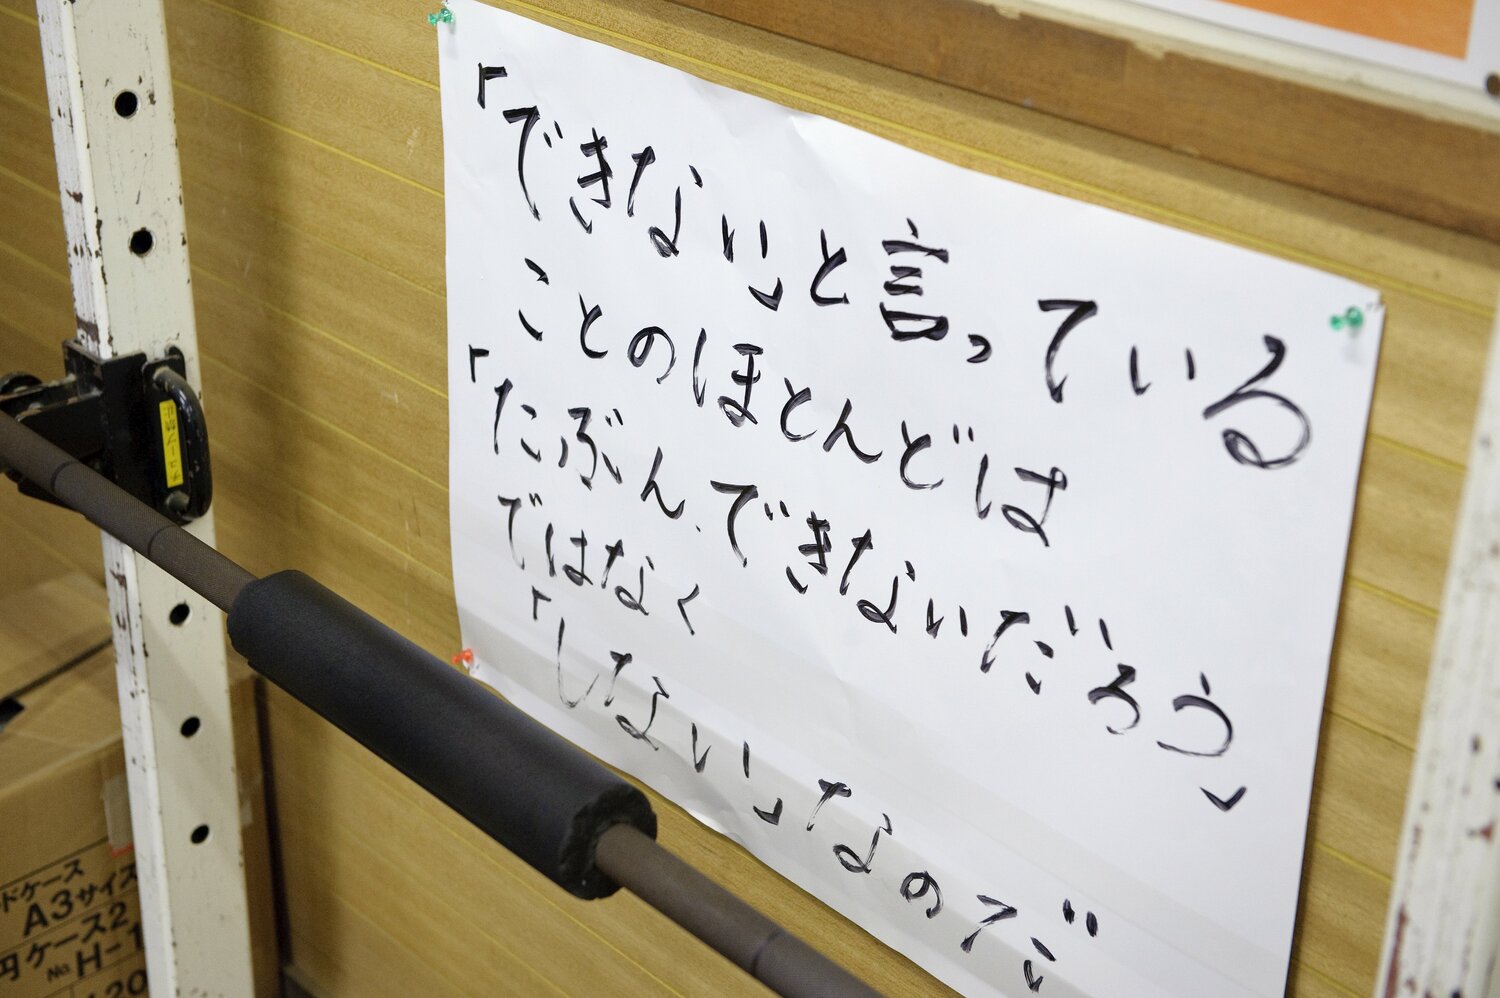 「できない」と言っている
ことのほとんどは
「たぶん、できないだろう」
ではなく
「しない」なのだ
ドケース
A3サイズ
円ケース2
No H-1
120